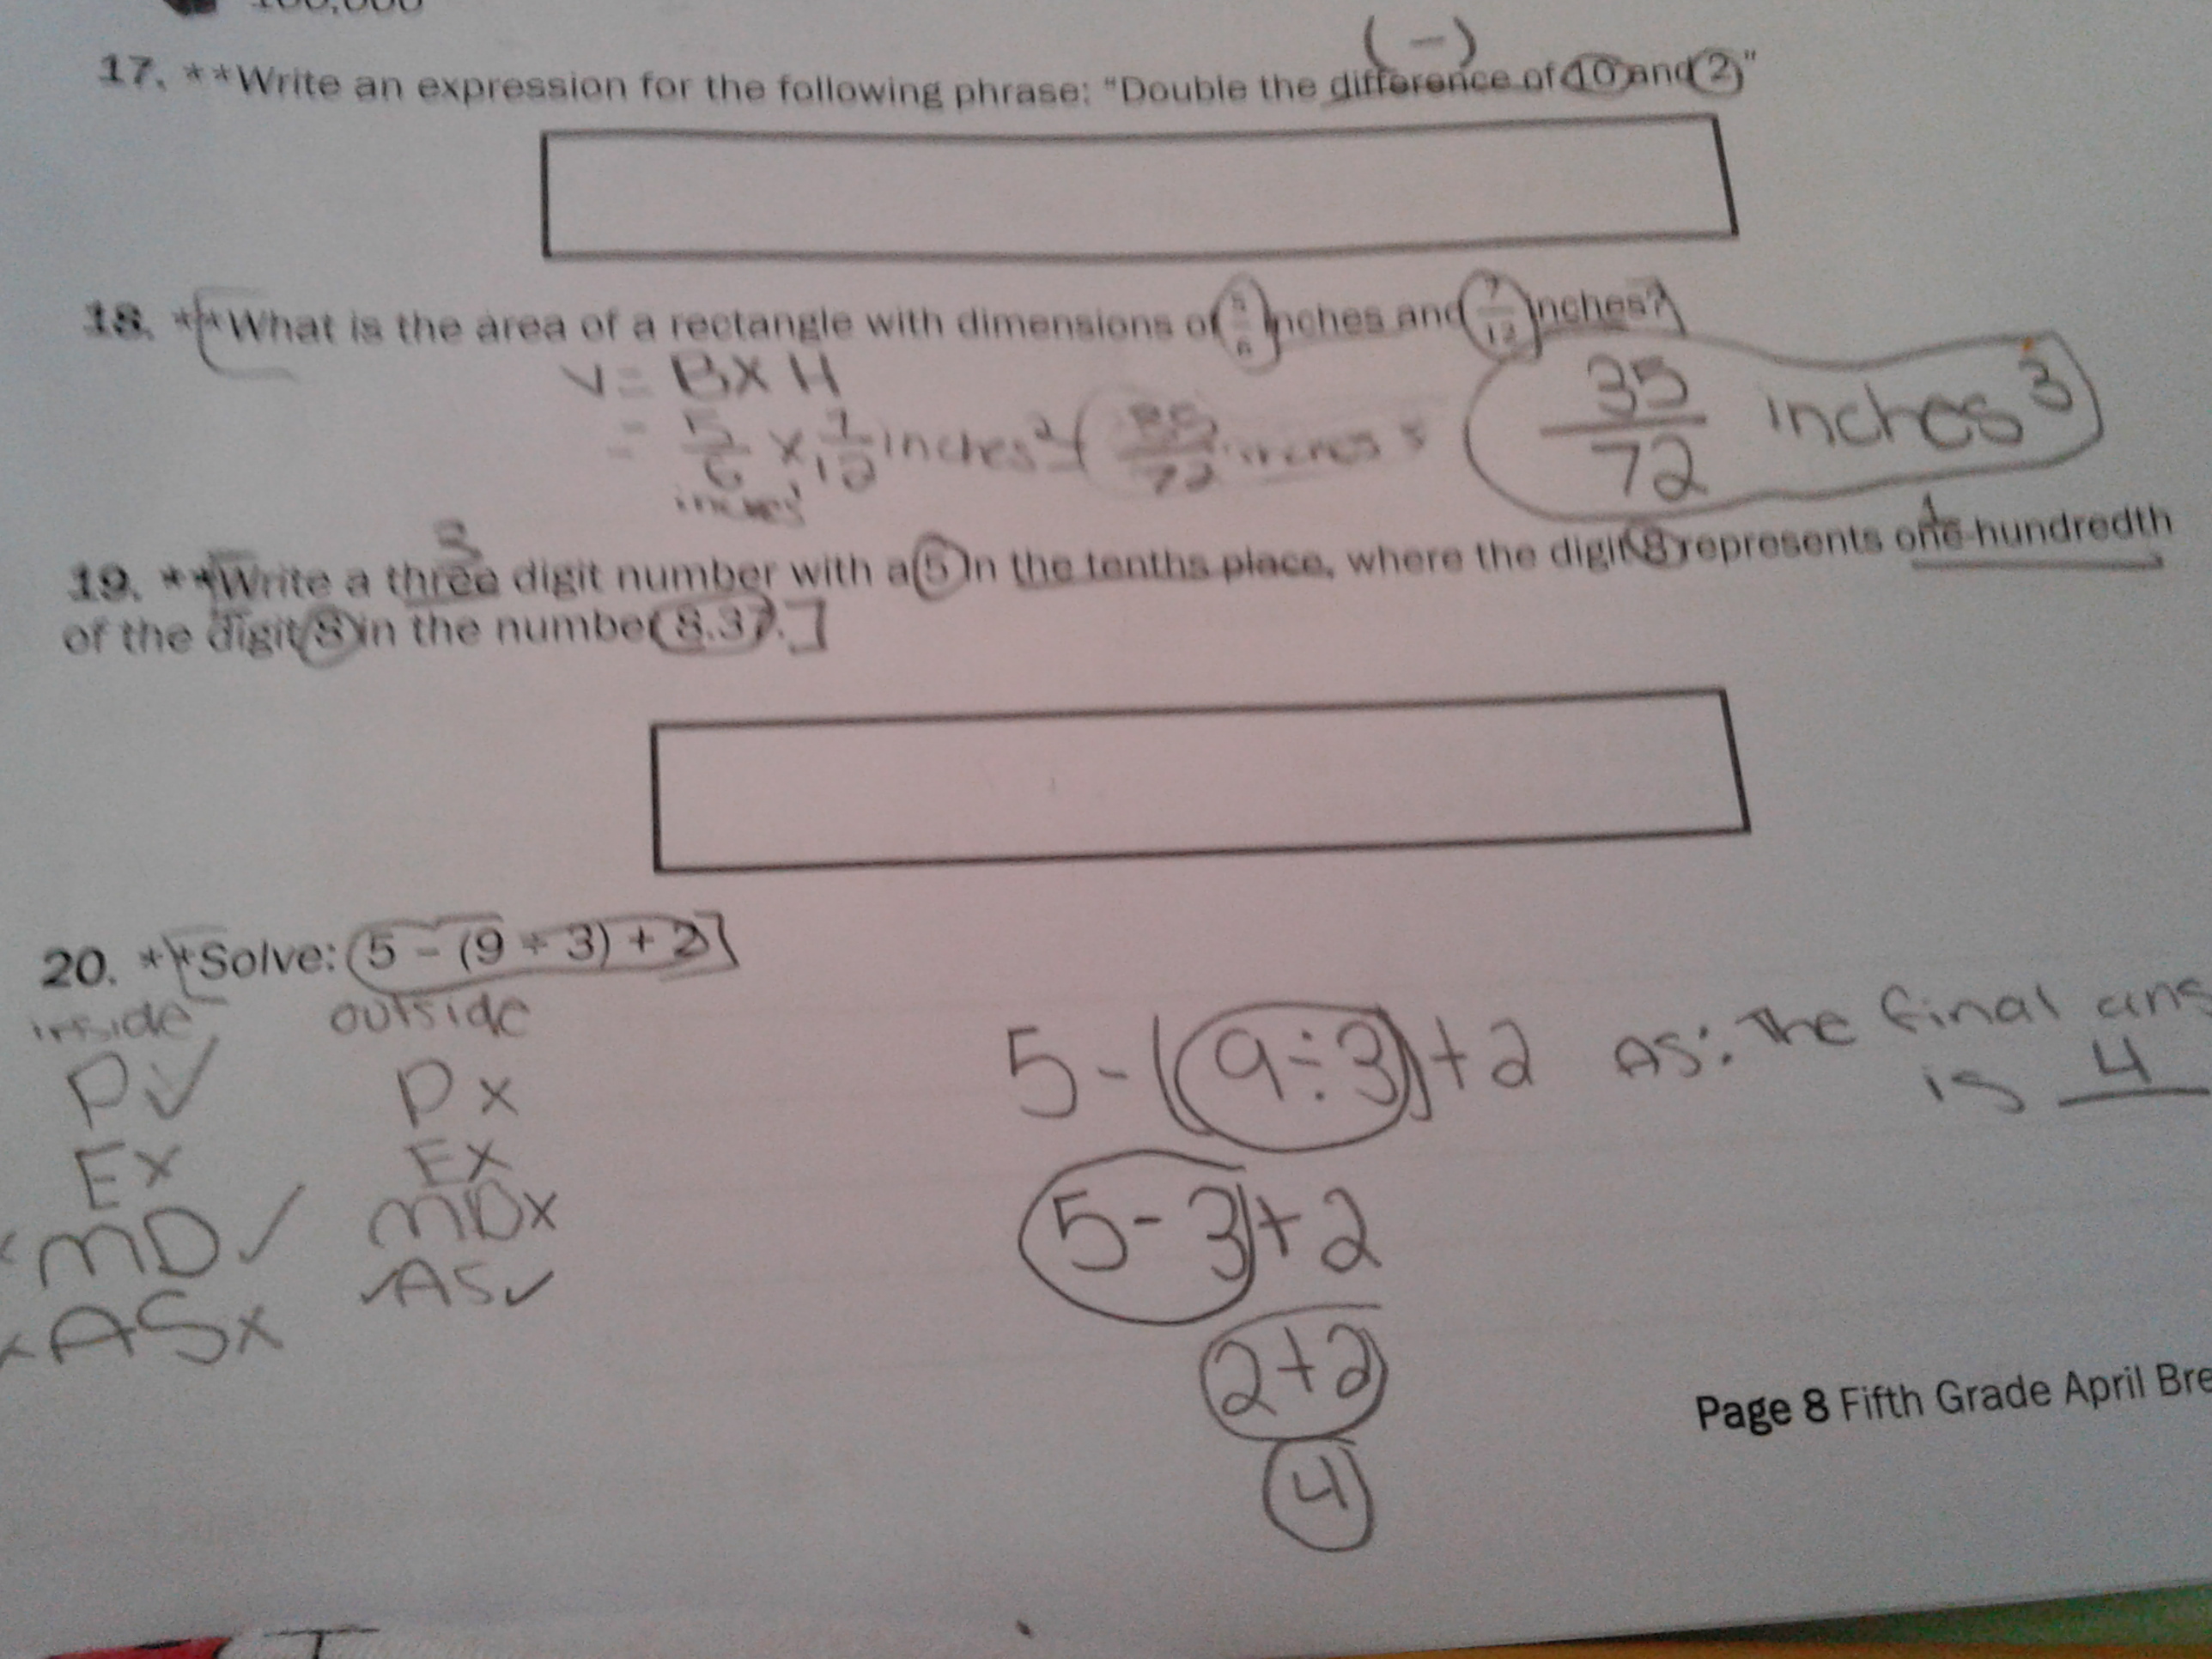 (-)
17. **Write an expression for the following phrase: "Double the difference of 10 and 2"
18. **What is the area of a rectangle with dimensions of 5/6 inches and 7/12 inches?
V = B X H
= 5/6 x 7/12 inches² 35/72 inches³
inches¹
35/72 inches³
3
19. **Write a three digit number with a 5 in the tenths place, where the digit 8 represents one-hundredth
of the digit 8 in the number 8.37.]
20. **Solve: 5 - (9 ÷ 3) + 2]
inside outside
P✓ P x
Ex Ex
MD✓ MDx
ASx ✓AS✓
5-(9÷3)+2
5-3+2
2+2
4
AS: The final ans
is 4
Page 8 Fifth Grade April Bre